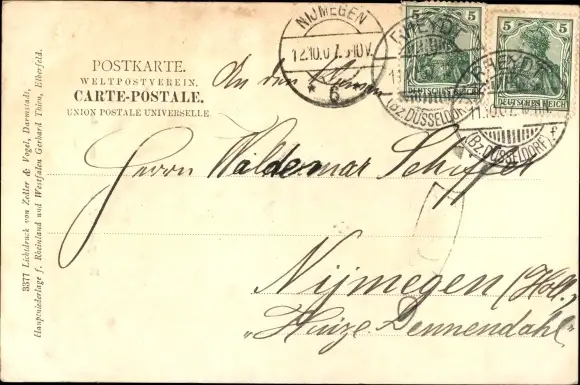 POSTKARTE.
WELTPOSTVEREIN.
CARTE-POSTALE.
UNION POSTALE UNIVERSELLE.
NIJMEGEN
12.10.07. 5-10V.
* 6
RHEYDT
11
(Bz.DÜSSELDORF)
5
DEUTSCHES REICH
5
DEUTSCHES REICH
RHEYDT
11.10.07.
(Bz.DÜSSELDORF) f
An den
Herrn Waldemar Scheffel
Nijmegen (Holl.
„Huize Dennendahl"
3377 Lichtdruck von Zedler & Vogel, Darmstadt.
Hauptniederlage f. Rheinland und Westfalen Gerhard Thien, Elberfeld.